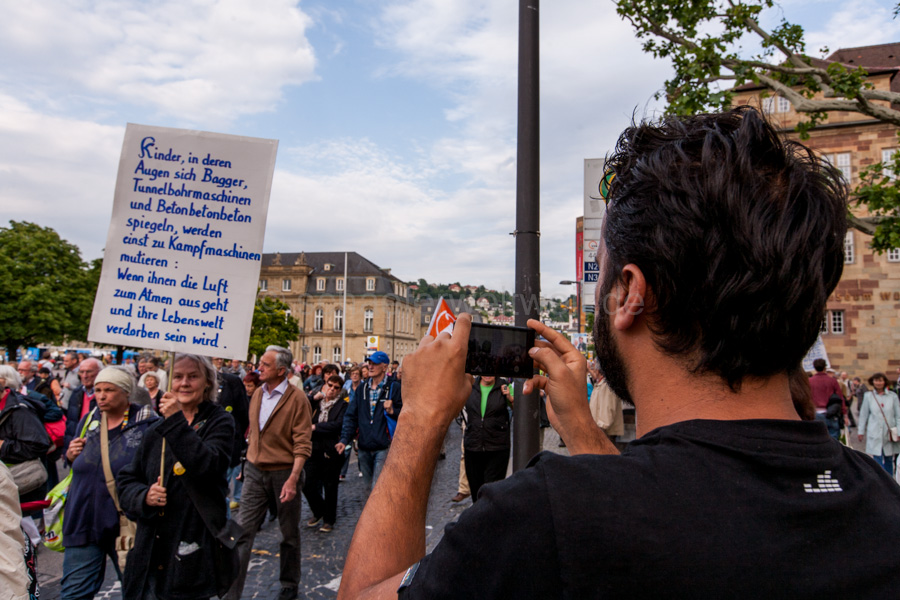 Kinder, in deren
Augen sich Bagger,
Tunnelbohrmaschinen
und Betonbetonbeton
spiegeln, werden
einst zu Kampfmaschinen
mutieren :
Wenn ihnen die Luft
zum Atmen ausgeht
und ihre Lebenswelt
verdorben sein wird.
N2
N3